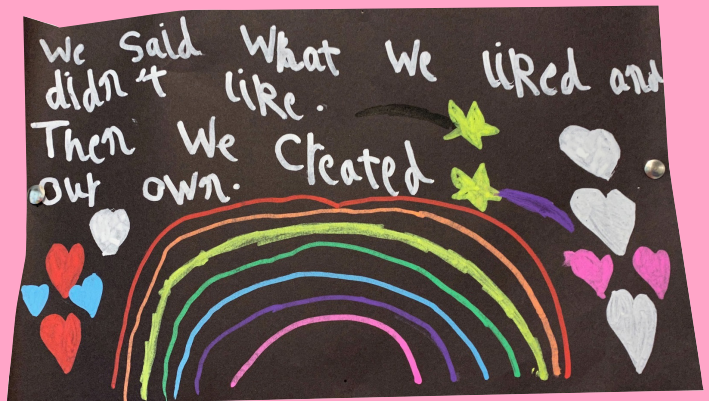 We Said What We liked and
didn't like.
Then We Created
our own.